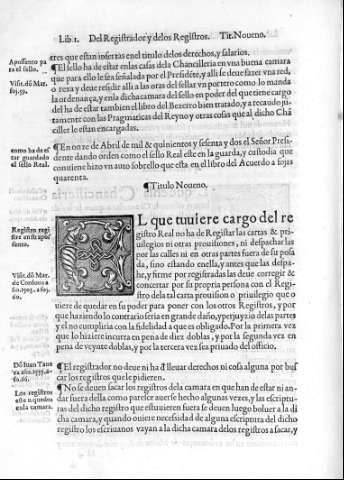 Lib 1. Del Registrador y delos Registros. Tit. Noueno.
etes que estan insertas en el titulo delos derechos, y salarios.
Aposento pa
ra el sello.
¶El sello ha de estar en las casas dela Chancilleria en vna buena camara
que para ello le sea señalada por el Presidẽte, y alli se deue fazer vna red,
Visit. dõ Mar.
foj. 59.
o rexa y deue residir alli a las oras del sellar vn portero como lo manda
la ordenança, y en la dicha camara del sello en poder del que tiene cargo
del ha de estar tambien el libro del Bezerro bien tratado, y a recaudo jũ
tamente con las Pragmaticas del Reyno y otras cosas que al dicho Chã
ciller le estan encargadas.
como ha de es
tar guardado
el sello Real.
¶En onze de Abril de mil & quinientos y sesenta y dos el Señor Presi
dente dando orden como el sello Real este en la guarda, y custodia que
contiene hizo vn auto sobrello que esta en el libro del Acuerdo a fojas
quarenta.
¶Titulo Noueno.
Registro regi
stre en su apo
sento.
EL que tuuiere cargo del re
gistro Real no ha de Registar las cartas & pri
uilegios ni otras prouisiones, ni despachar las
por las calles ni en otras partes fuera de su posa
da, sino estando en ella, y antes que las despa-
Visit. dõ Mar.
de Cordoua a
ño. 1503.
che, y firme por registradas las deue corregir &
concertar por su propria persona con el Regis-
tro dela tal carta prouision o priuilegio que o
uiere de quedar en su poder para poner con los otros Registros, y por
que haziendo lo contrario seria en grande daño, y perjuyzio delas partes
y el no cumpliria con la fidelidad a que es obligado. Por la primera vez
que lo hiziere incurra en pena de diez doblas, y por la segunda vez en
pena de veynte doblas, y por la tercera vez sea priuado del officio.
Dõ Iuan Taue
ra año. 1525. a
fo. 66.
¶El registrador no deue ni ha d̃ lleuar derechos ni cosa alguna por bus
car los registros que le pidieren.
Los registros
esten guarda
en la camara.
¶No se deuen sacar los registros dela camara en que han de estar ni an-
dar fuera dessa como parece auerse hecho algunas vezes, y las escriptu-
ras del dicho registro que estuuieren fuera se deuen luego boluer a la di
cha camara, y quando ouiere necessidad de alguna escriptura del dicho
registro los escriuanos vayan a la dicha camara delos registros a sacar, y